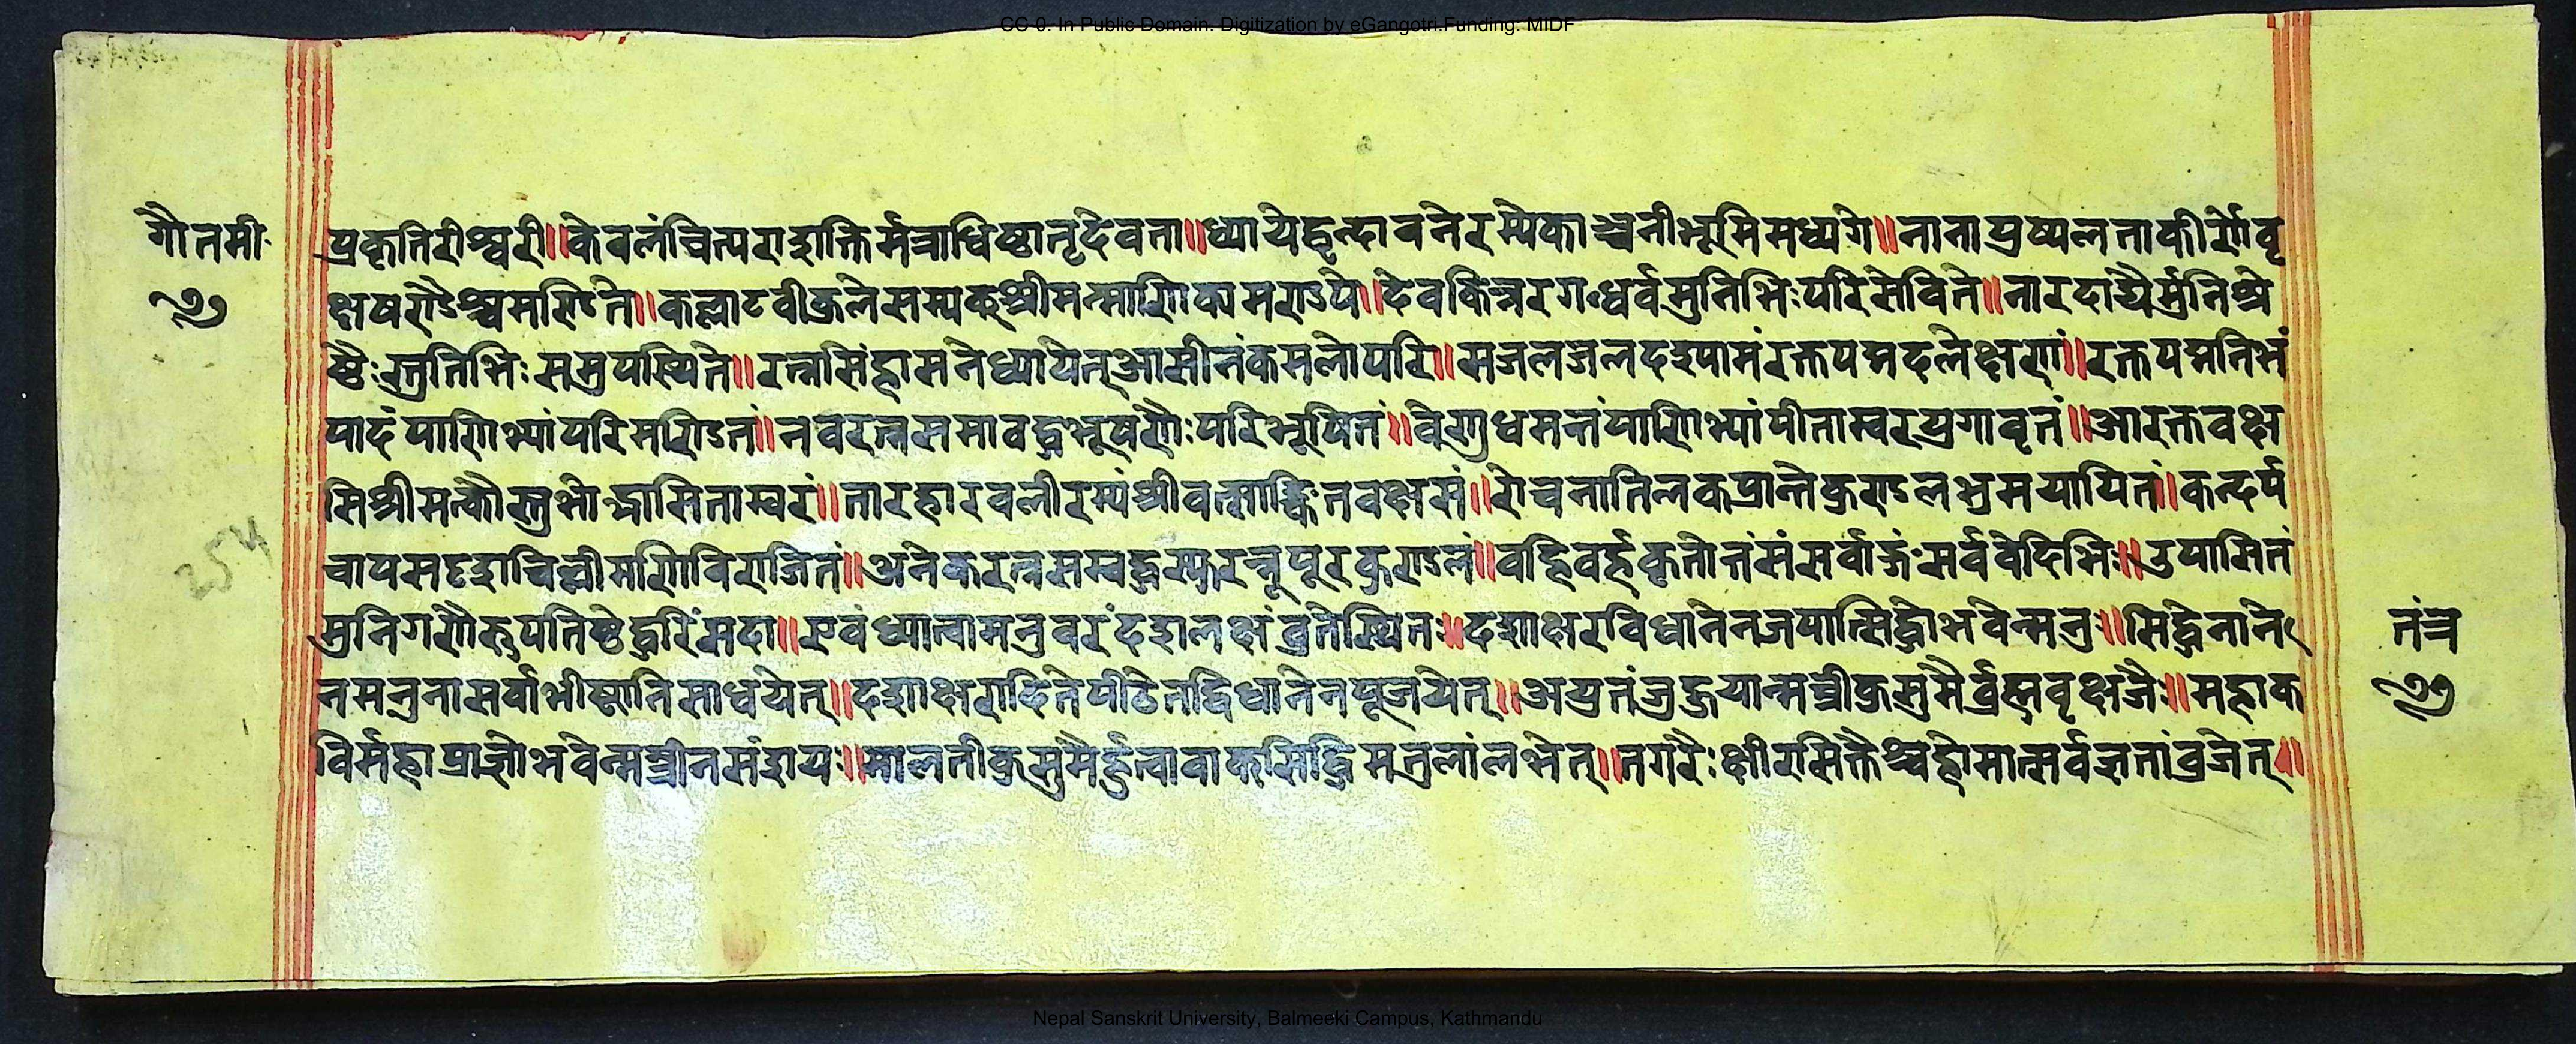 CC-0. In Public Domain. Digitization by eGangotri.Funding. MIDF
गौतमी
प्रकृतिरीश्वरी॥केवलंचित्पराशक्तिर्मंत्राधिष्ठातृदेवता॥ध्यायेद्वृन्दावनेरम्येकाञ्चनीभूमिमध्यगे॥नानापुष्पलताकीर्णेवृ
क्षषण्डैश्चमण्डिते॥कल्पाटवीकुलेसम्यक्श्रीमन्माणिक्यमण्डपे॥देवकिन्नरगन्धर्वमुनिभिःपरिसेविते॥नारदाद्यैर्मुनिश्रे
ष्ठैःस्तुतिभिःसमुपस्थिते॥रत्नसिंहासनेध्यायेत्आसीनंकमलोपरि॥सजलजलदश्यामंरक्तपद्मदलेक्षणं॥रक्तपद्मनिभं
पादंपाणिभ्यांपरिमण्डितं॥नवरत्नसमाबद्धभूषणैःपरिभूषितं॥वेणुधमन्तंपाणिभ्यांपीताम्बरयुगावृतं॥आरक्तवक्ष
सिश्रीमत्कौस्तुभोद्भासिताम्बरं॥तारहारवलीरम्यंश्रीवत्साङ्कितवक्षसं॥रोचनातिलकप्रान्तेकुण्डलभ्रमयायितं॥कन्दर्प
चापसदृशचिल्लीमणिविराजितं॥अनेकरत्नसम्बद्धस्फुरन्नूपुरकुण्डलं॥वर्हिवर्हकृतोत्तंसंसर्वाङ्गंसर्ववेदिभिः॥उपासितं
मुनिगणैरुपतिष्ठेद्धरिंसदा॥एवंध्यात्वामनुवरंदशलक्षंव्रतेस्थितः॥दशाक्षरविधानेनजपात्सिद्धोभवेन्मनुः॥सिद्धेनाने
तंत्र
नमनुनासर्वाभीष्टानिसाधयेत्॥दशाक्षरादितेपीठेतद्विधानेनपूजयेत्॥अयुतंजुहुयान्मन्त्रीकुसुमैर्ब्रह्मवृक्षजैः॥महाक
विर्महाप्राज्ञोभवेन्मन्त्रीनसंशयः॥मालतीकुसुमैर्हुत्वावाक्सिद्धिमतुलांलभेत्॥तगरैःक्षीरसिक्तैश्चहोमात्सर्वज्ञतांव्रजेत्॥
254
Nepal Sanskrit University, Balmeeki Campus, Kathmandu